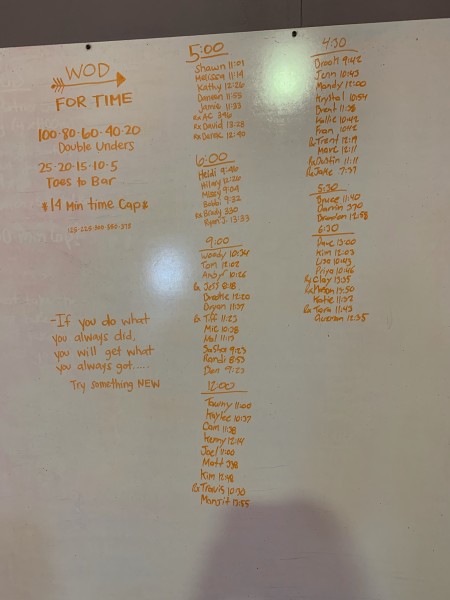 WOD
FOR TIME
100-80-60-40-20
Double Unders
25-20-15-10-5
Toes to Bar
*14 Min time Cap*
-If you do what
you always did,
you will get what
you always got.....
Try something NEW
5:00
Shawn 11:01
Melissa 11:19
Kathy 12:26
Doreen 11:53
Jamie 11:33
Rx AC 396
Rx David 13:28
Rx Derek 12:40
6:00
Heidi
Hilary 12:20
Missy 9:04
Bobbi 9:32
Rx Brady 330
Ryan J. 13:33
9:00
Wendy 10:34
Tom 12:02
Andy 10:26
Rx Jeff 8:18
Brooke 12:20
Bryan 11:37
Rx Tiff 11:23
Mic 10:38
Mel 11:17
Sasha 9:23
Randi 8:53
Dan 9:23
12:00
Tawny 11:00
Kaylee 10:37
Cam 11:38
Kerry 12:14
Joel 11:00
Matt
Kim 12:48
Rx Travis 10:30
Manjit 13:55
4:30
Brook 9:42
Jenn 10:43
Mandy 12:00
Krystal 10:54
Brent 11:08
Kallie 10:42
Fran 10:42
Rx Trent 12:19
Marc 12:11
Rx Dustin 11:11
Rx Jake 7:37
5:30
Bruce 11:40
Darrin 370
Brandon 12:58
6:30
Dave 13:00
Kim 12:03
Lisa 10:43
Priya 10:46
Rx Clay 13:35
Rx Mason 13:50
Katie 11:37
Rx Tara 11:43
Cameron 12:35